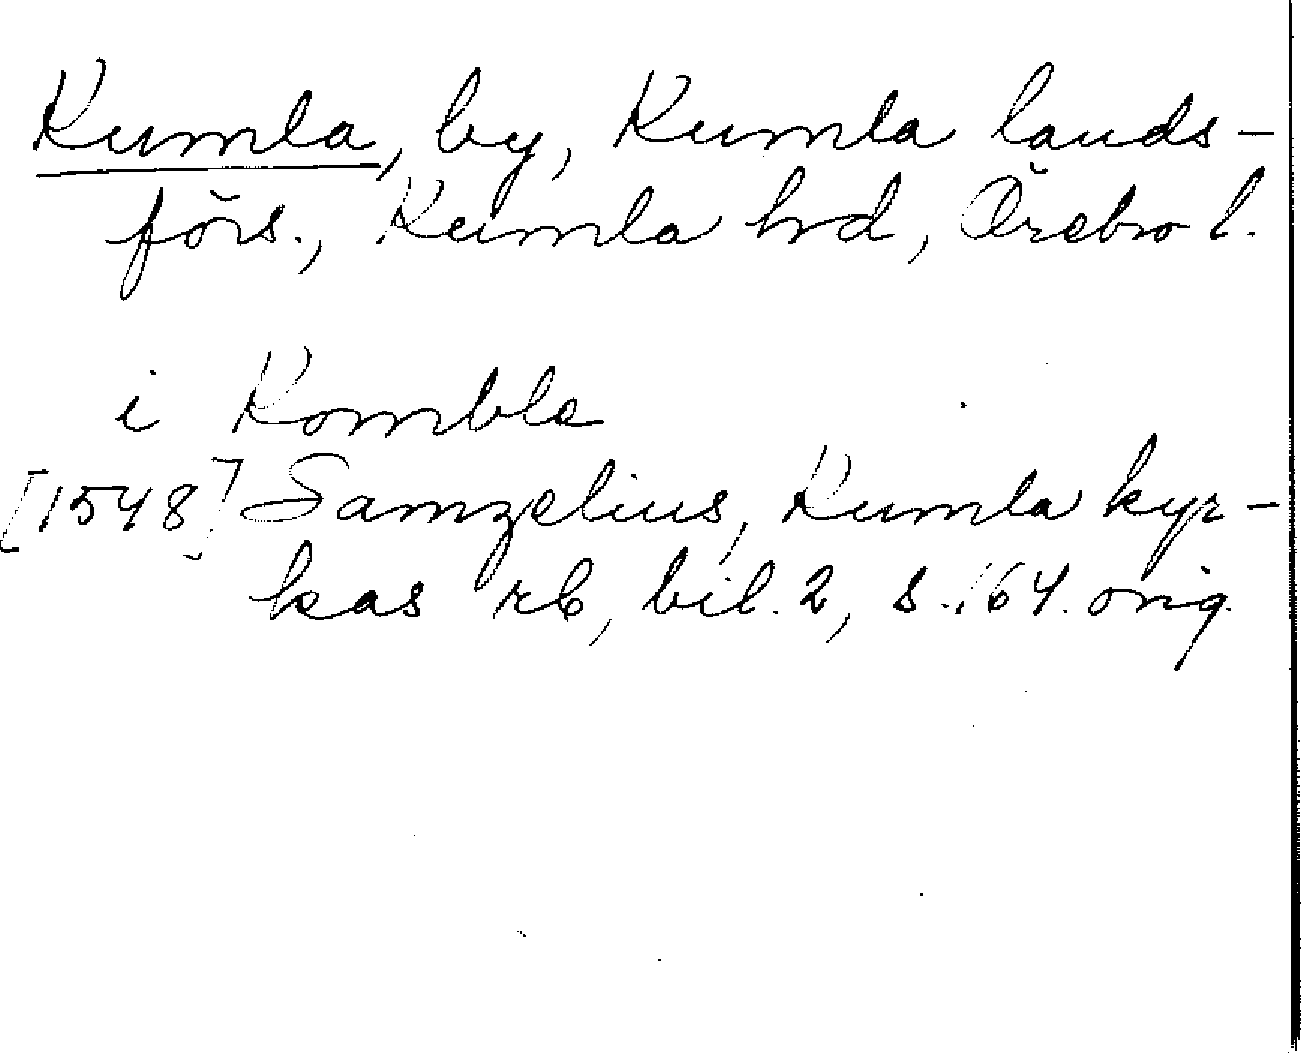 Kumla, by, Kumla lands-
förs., Kumla hrd, Örebro l.
i Kombla
[1548] Samzelius, Kumla kyr-
kas rb, bil. 2, s. 164. orig.